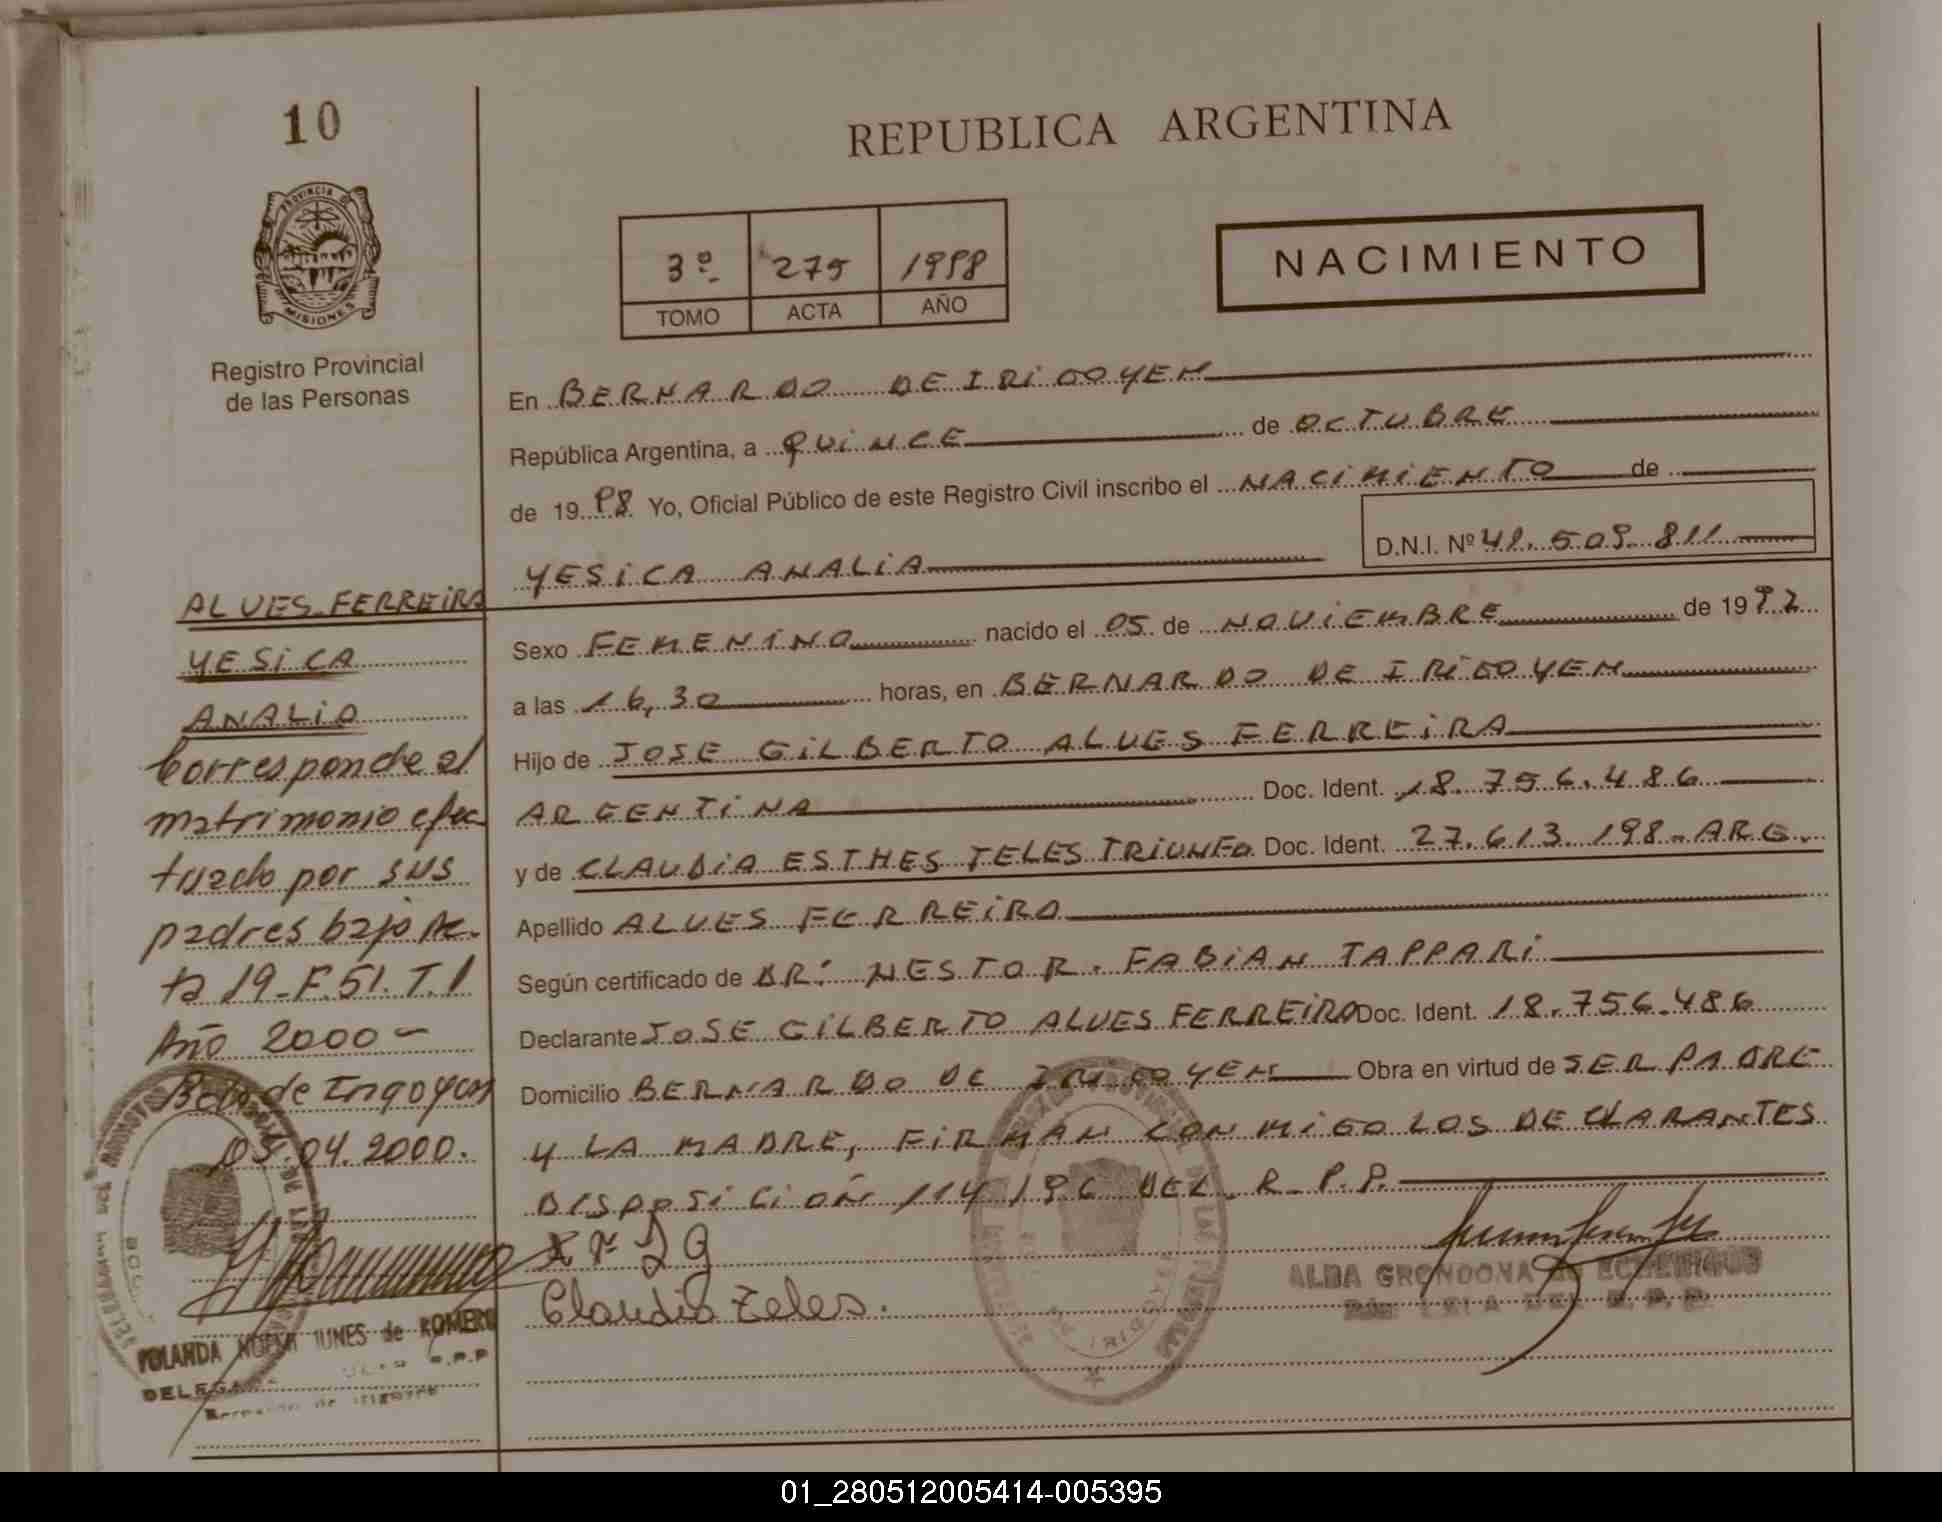 10
REPUBLICA ARGENTINA
PROVINCIA DE
MISIONES
Registro Provincial
de las Personas
3º 275 1998
TOMO ACTA AÑO
NACIMIENTO
En BERNARDO DE IRIGOYEN
República Argentina, a QUINCE de OCTUBRE
de 1998 Yo, Oficial Público de este Registro Civil inscribo el NACIMIENTO de
YESICA ANALIA D.N.I. Nº 41.509.811
Sexo FEMENINO nacido el 05 de NOVIEMBRE de 1992
a las 16,30 horas, en BERNARDO DE IRIGOYEN
Hijo de JOSE GILBERTO ALVES FERREIRA
ARGENTINA Doc. Ident. 18.756.486
y de CLAUDIA ESTHES TELES TRIUNFO Doc. Ident. 27.613.198-ARG.
Apellido ALVES FERREIRA
Según certificado de DR: NESTOR. FABIAN TAPPARI
Declarante JOSE GILBERTO ALVES FERREIRA Doc. Ident. 18.756.486
Domicilio BERNARDO DE IRIGOYEN Obra en virtud de SER PADRE
Y LA MADRE, FIRMAN CONMIGO LOS DECLARANTES
DISPOSICIÓN 114/96 DEL R.P.P.
Claudia Teles.
ALBA GRONDONA DE
ALVES FERREIRA
YESICA
ANALIA
Corresponde al
matrimonio efec
tuado por sus
padres bajo Ac-
ta 19-F.51.T.1
Año 2000-
Bdo de Irigoyen
05.04.2000.
YOLANDA NUNES de ROMERO
DELEGADA R.P.P
Bernardo de Irigoyen
01_280512005414-005395